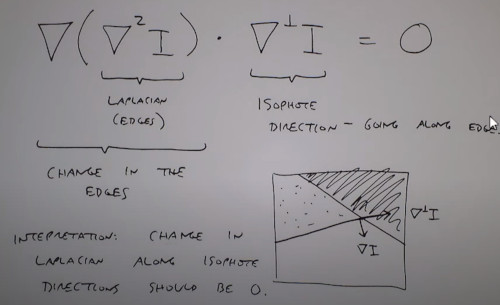 ∇(∇²I) · ∇⊥I = 0
LAPLACIAN
(EDGES)
ISOPHOTE
DIRECTION - GOING ALONG EDGE.
CHANGE IN THE
EDGES
INTEPRETATION: CHANGE IN
LAPLACIAN ALONG ISOPHOTE
DIRECTIONS SHOULD BE 0.
∇⊥I
∇I